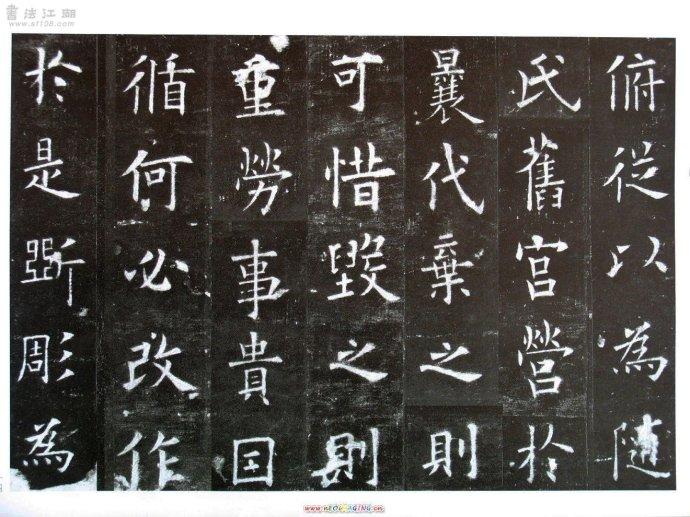 書法江湖
www.sf108.com
俯從以為隨
氏舊宮營於
曩代棄之則
可惜毀之則
重勞事貴因
循何必改作
於是斲彫為
www.nEOIMAGING.cn